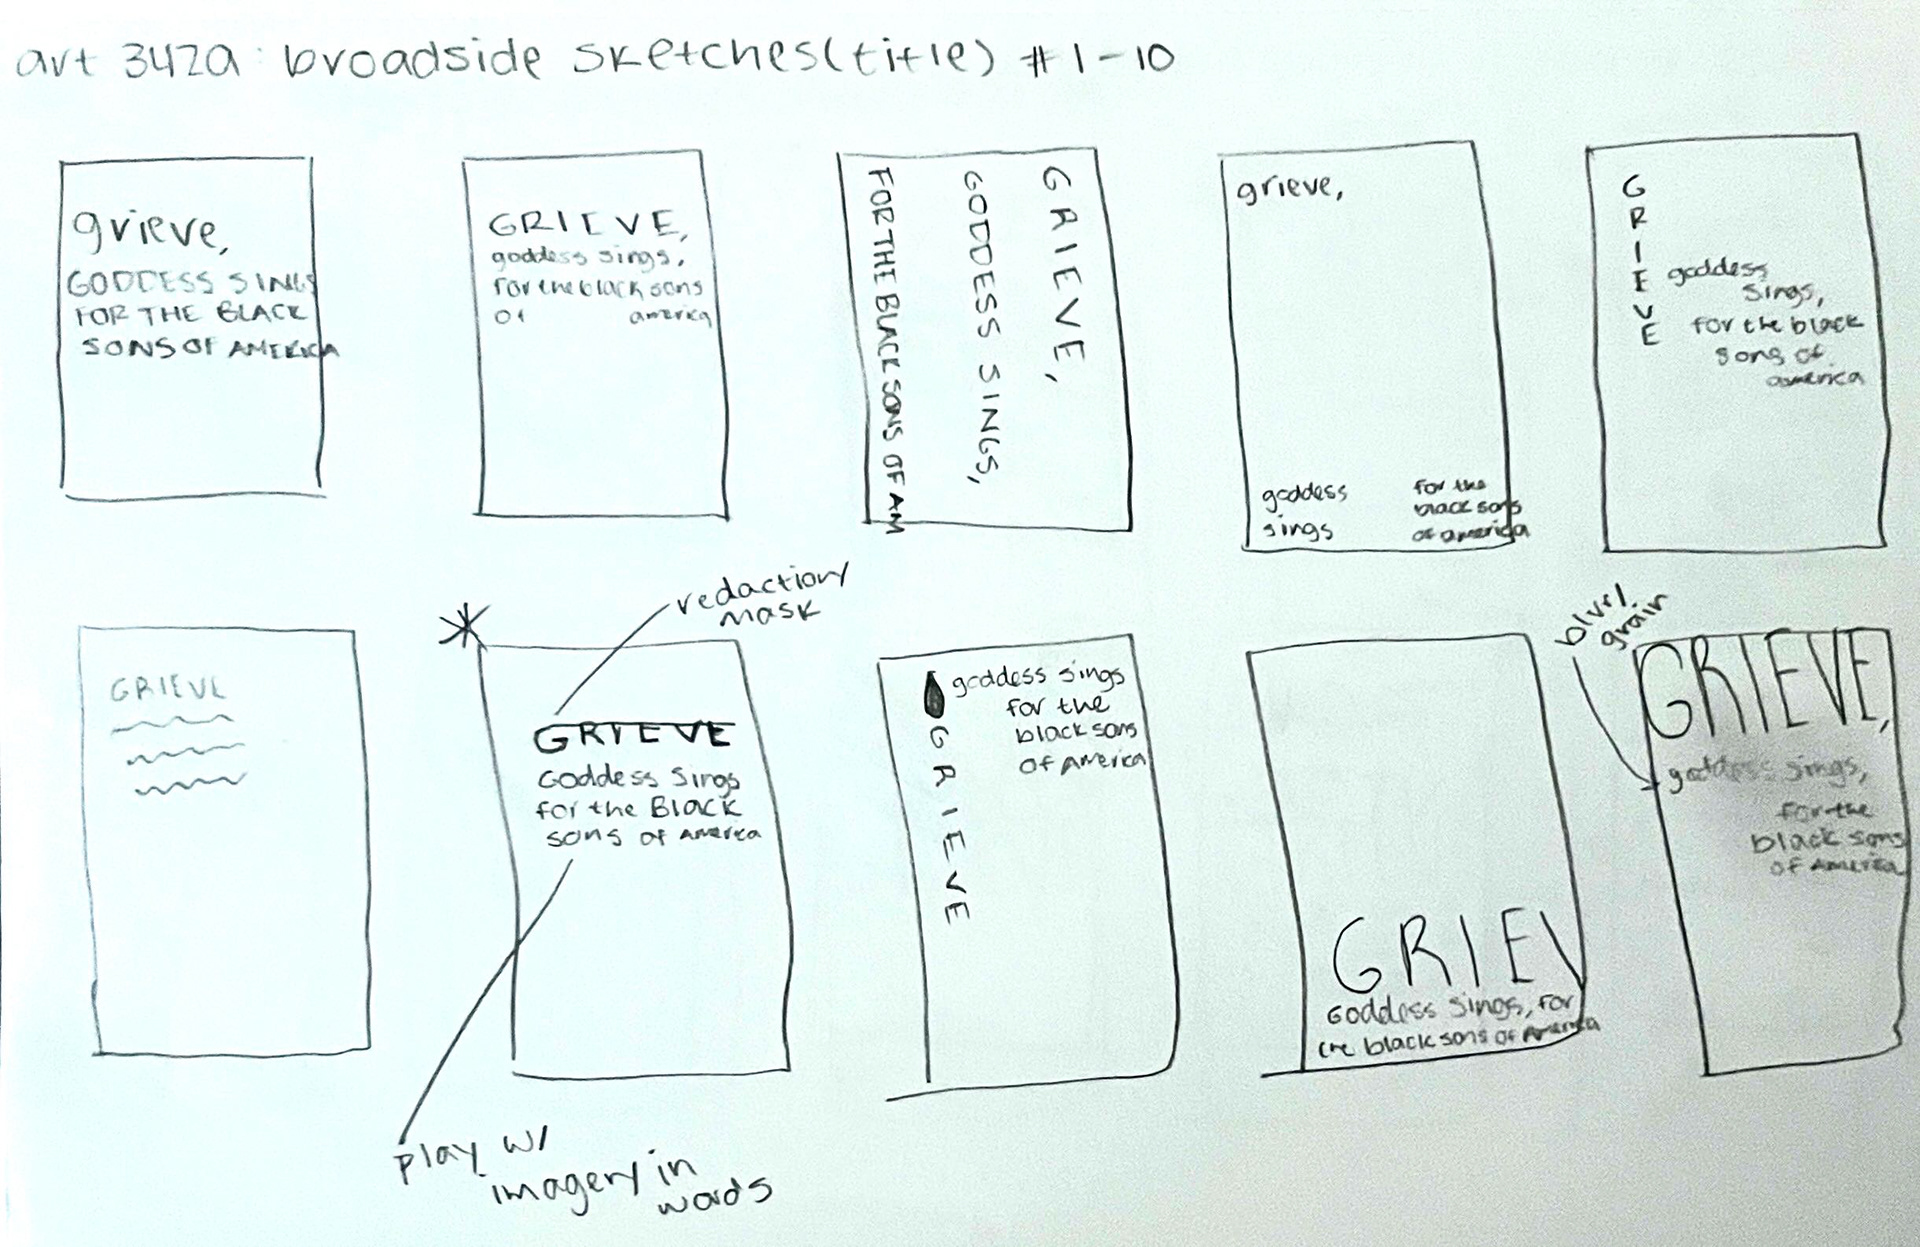 art 342a: broadside sketches(title) #1-10
grieve,
GODDESS SINGS
FOR THE BLACK
SONS OF AMERICA
GRIEVE,
goddess sings,
for the black sons
of america
GRIEVE,
GODDESS SINGS,
FOR THE BLACK SONS OF AM
grieve,
goddess
sings
for the
black sons
of america
GRIEVE
goddess
sings,
for the black
sons of
america
GRIEVE
redaction
mask
GRIEVE
Goddess Sings
for the Black
sons of America
play w/
imagery in
words
goddess sings
for the
black sons
of America
GRIEVE
GRIEV
Goddess Sings, for
the black sons of America
blur/
grain
GRIEVE,
goddess sings,
for the
black sons
of America